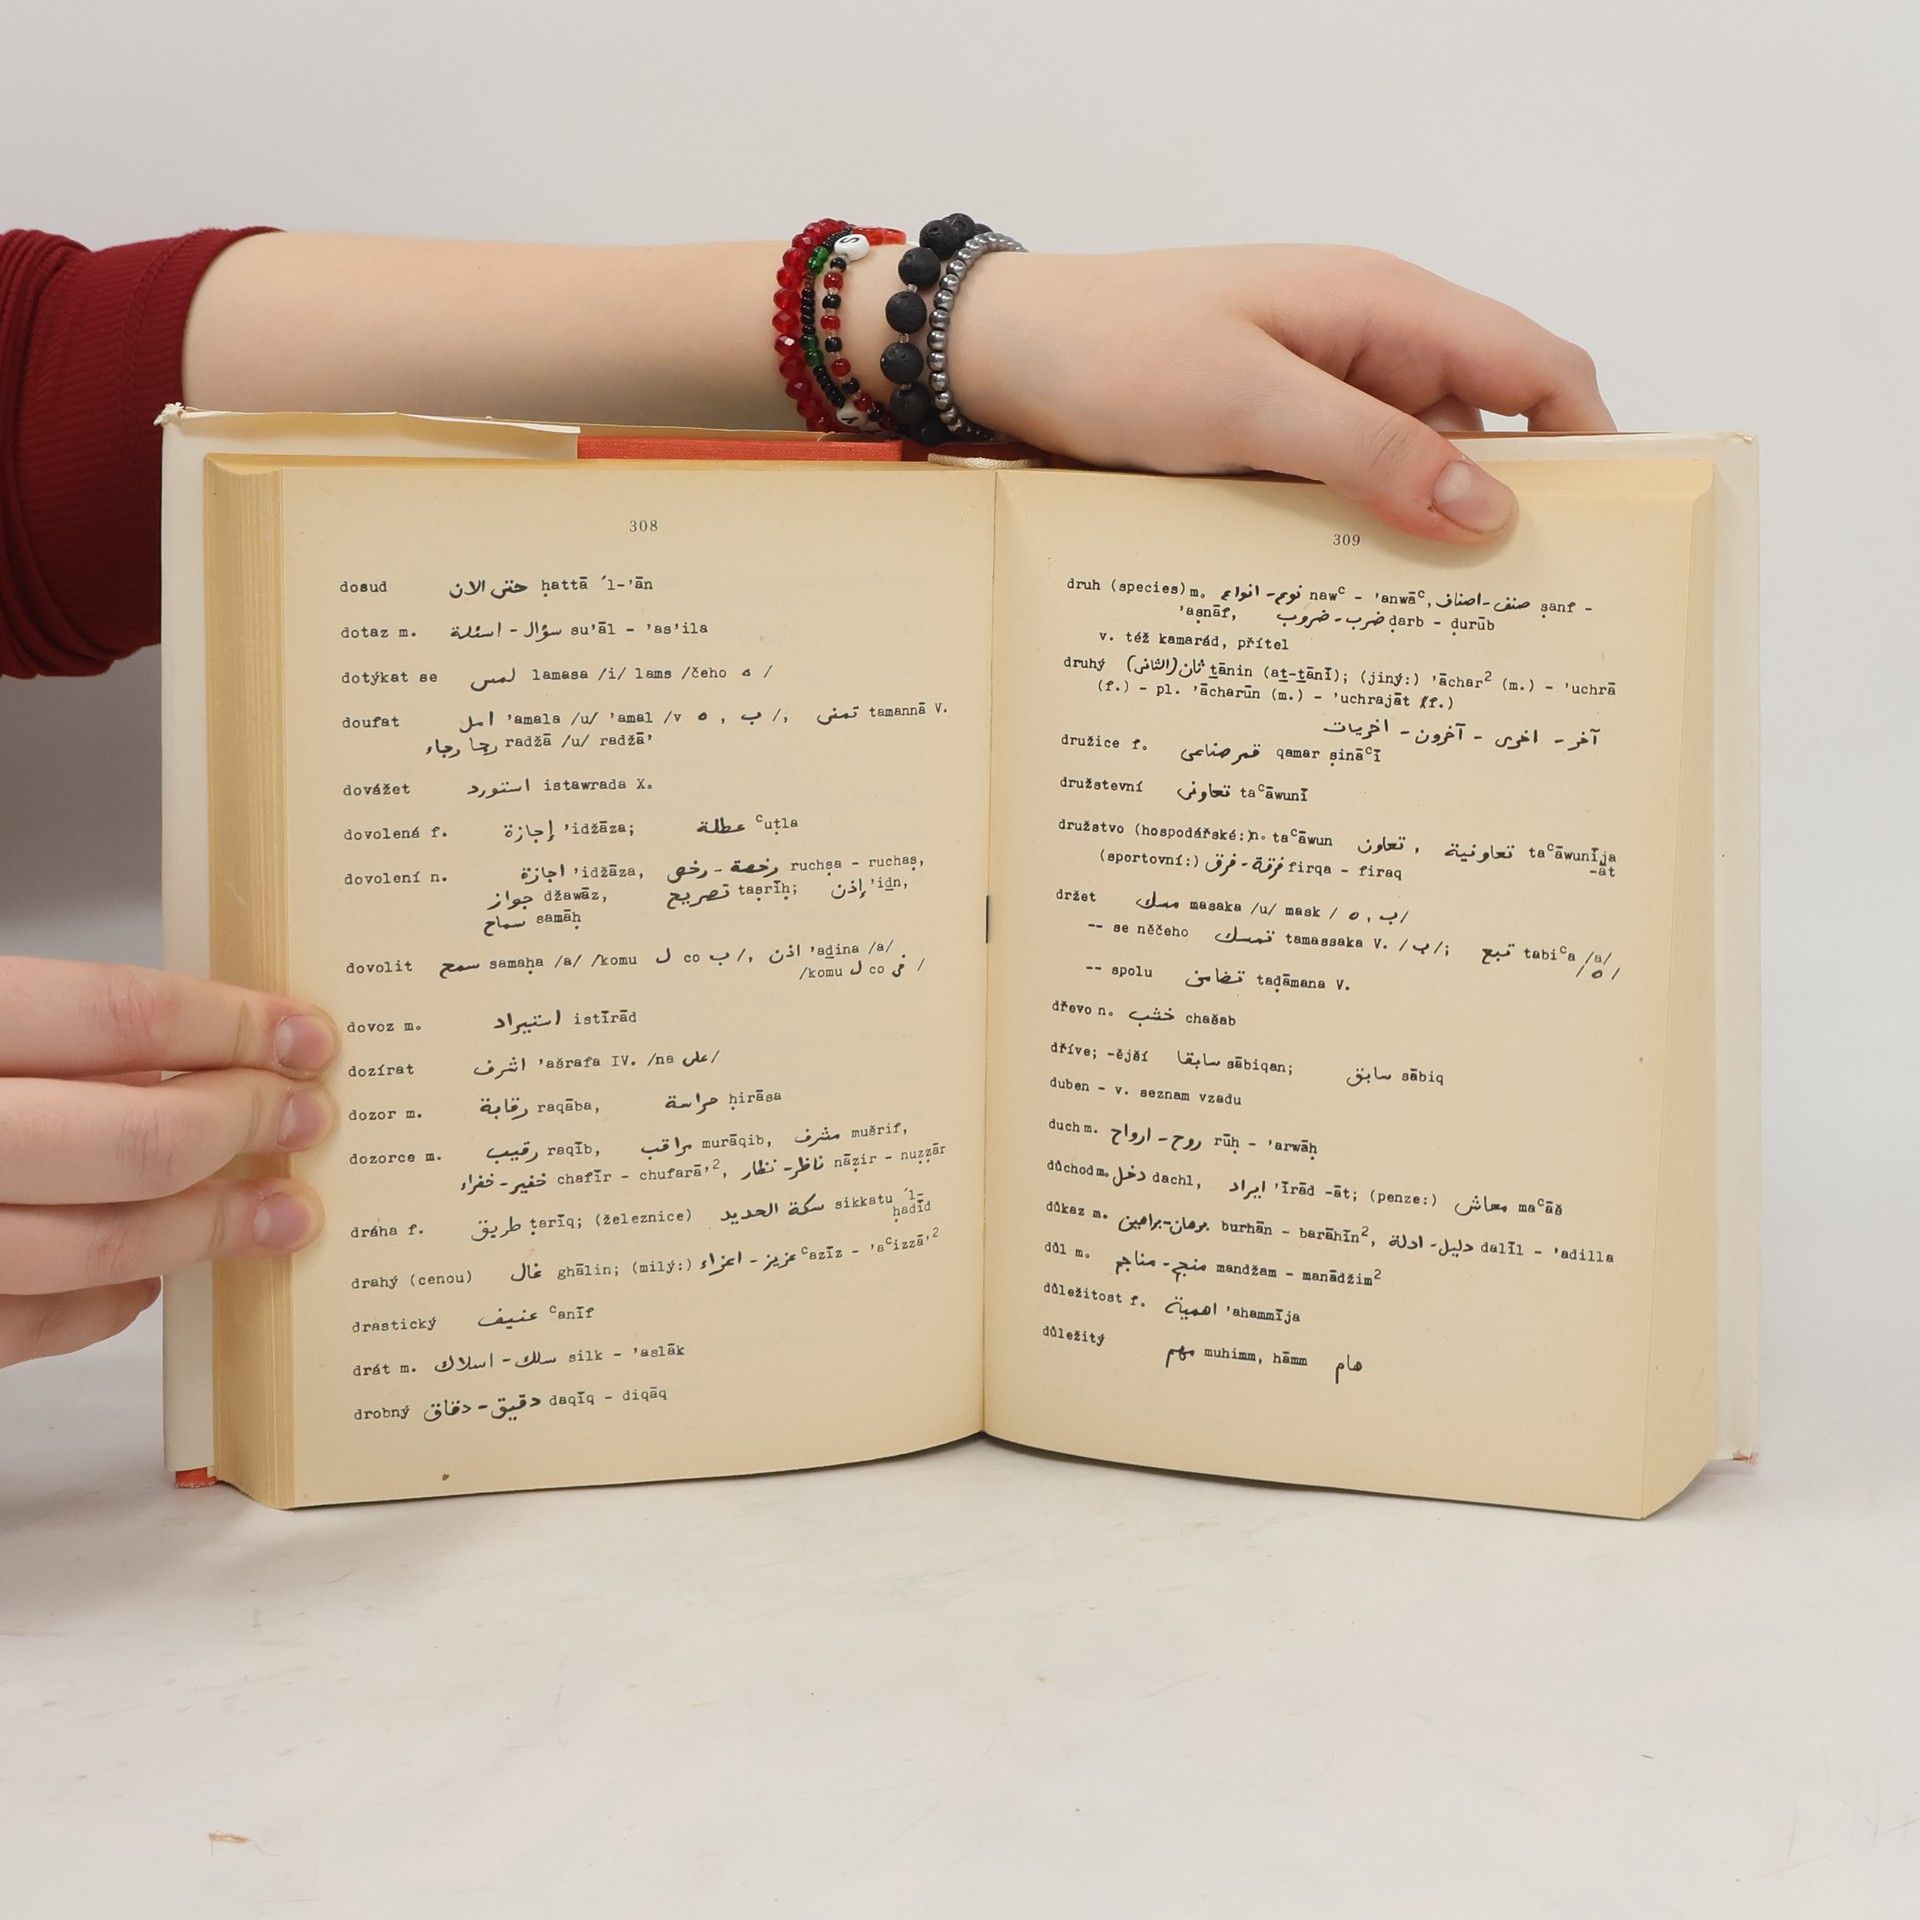 308
dosud حتى الان ḥattā ´l-'ān
dotaz m. سؤال - اسئلة su'āl - 'as'ila
dotýkat se لمس lamasa /i/ lams /čeho ه /
doufat امل 'amala /u/ 'amal /v ه , ب /, تمنى tamannā V.
رجا رجاء radžā /u/ radžā'
dovážet استورد istawrada X.
dovolená f. إجازة 'idžāza; عطلة ᶜuṭla
dovolení n. اجازة 'idžāza, رخصة - رخص ruchṣa - ruchaṣ,
جواز džawāz, تصريح taṣrīḥ; إذن 'iḏn,
سماح samāḥ
dovolit سمح samaḥa /a/ /komu ل co ب /, اذن 'aḏina /a/
/komu ل co في /
dovoz m. استيراد istīrād
dozírat اشرف 'ašrafa IV. /na على/
dozor m. رقابة raqāba, حراسة ḥirāsa
dozorce m. رقيب raqīb, مراقب murāqib, مشرف mušrif,
خفير - خفراء chafīr - chufarā'², ناظر - نظار nāẓir - nuẓẓār
dráha f. طريق ṭarīq; (železnice) سكة الحديد sikkatu ´l-
ḥadīd
drahý (cenou) غال ghālin; (milý:) عزيز - اعزاء ᶜazīz - 'aᶜizzā'²
drastický عنيف ᶜanīf
drát m. سلك - اسلاك silk - 'aslāk
drobný دقيق - دقاق daqīq - diqāq
309
druh (species) m. نوع - انواع nawᶜ - 'anwāᶜ, صنف - اصناف ṣanf -
'aṣnāf, ضرب - ضروب ḍarb - ḍurūb
v. též kamarád, přítel
druhý ثان (الثانى) ṯānin (aṯ-ṯānī); (jiný:) 'āchar² (m.) - 'uchrā
(f.) - pl. 'ācharūn (m.) - 'uchrajāt (f.)
آخر - اخرى - آخرون - اخريات
družice f. قمر صناعى qamar ṣināᶜī
družstevní تعاونى taᶜāwunī
družstvo (hospodářské:) n. taᶜāwun تعاون , تعاونية taᶜāwunīja
-āt
(sportovní:) فرقة - فرق firqa - firaq
držet مسك masaka /u/ mask / ه , ب/
-- se něčeho تمسك tamassaka V. / ب/; تبع tabiᶜa /a/
/ ه /
-- spolu تضامن taḍāmana V.
dřevo n. خشب chašab
dříve; -ější سابقا sābiqan; سابق sābiq
duben - v. seznam vzadu
duch m. روح - ارواح rūḥ - 'arwāḥ
důchod m. دخل dachl, ايراد 'īrād -āt; (penze:) معاش maᶜāš
důkaz m. برهان - براهين burhān - barāhīn², دليل - ادلة dalīl - 'adilla
důl m. منجم - مناجم mandžam - manādžim²
důležitost f. اهمية 'ahammīja
důležitý مهم muhimm, hāmm هام